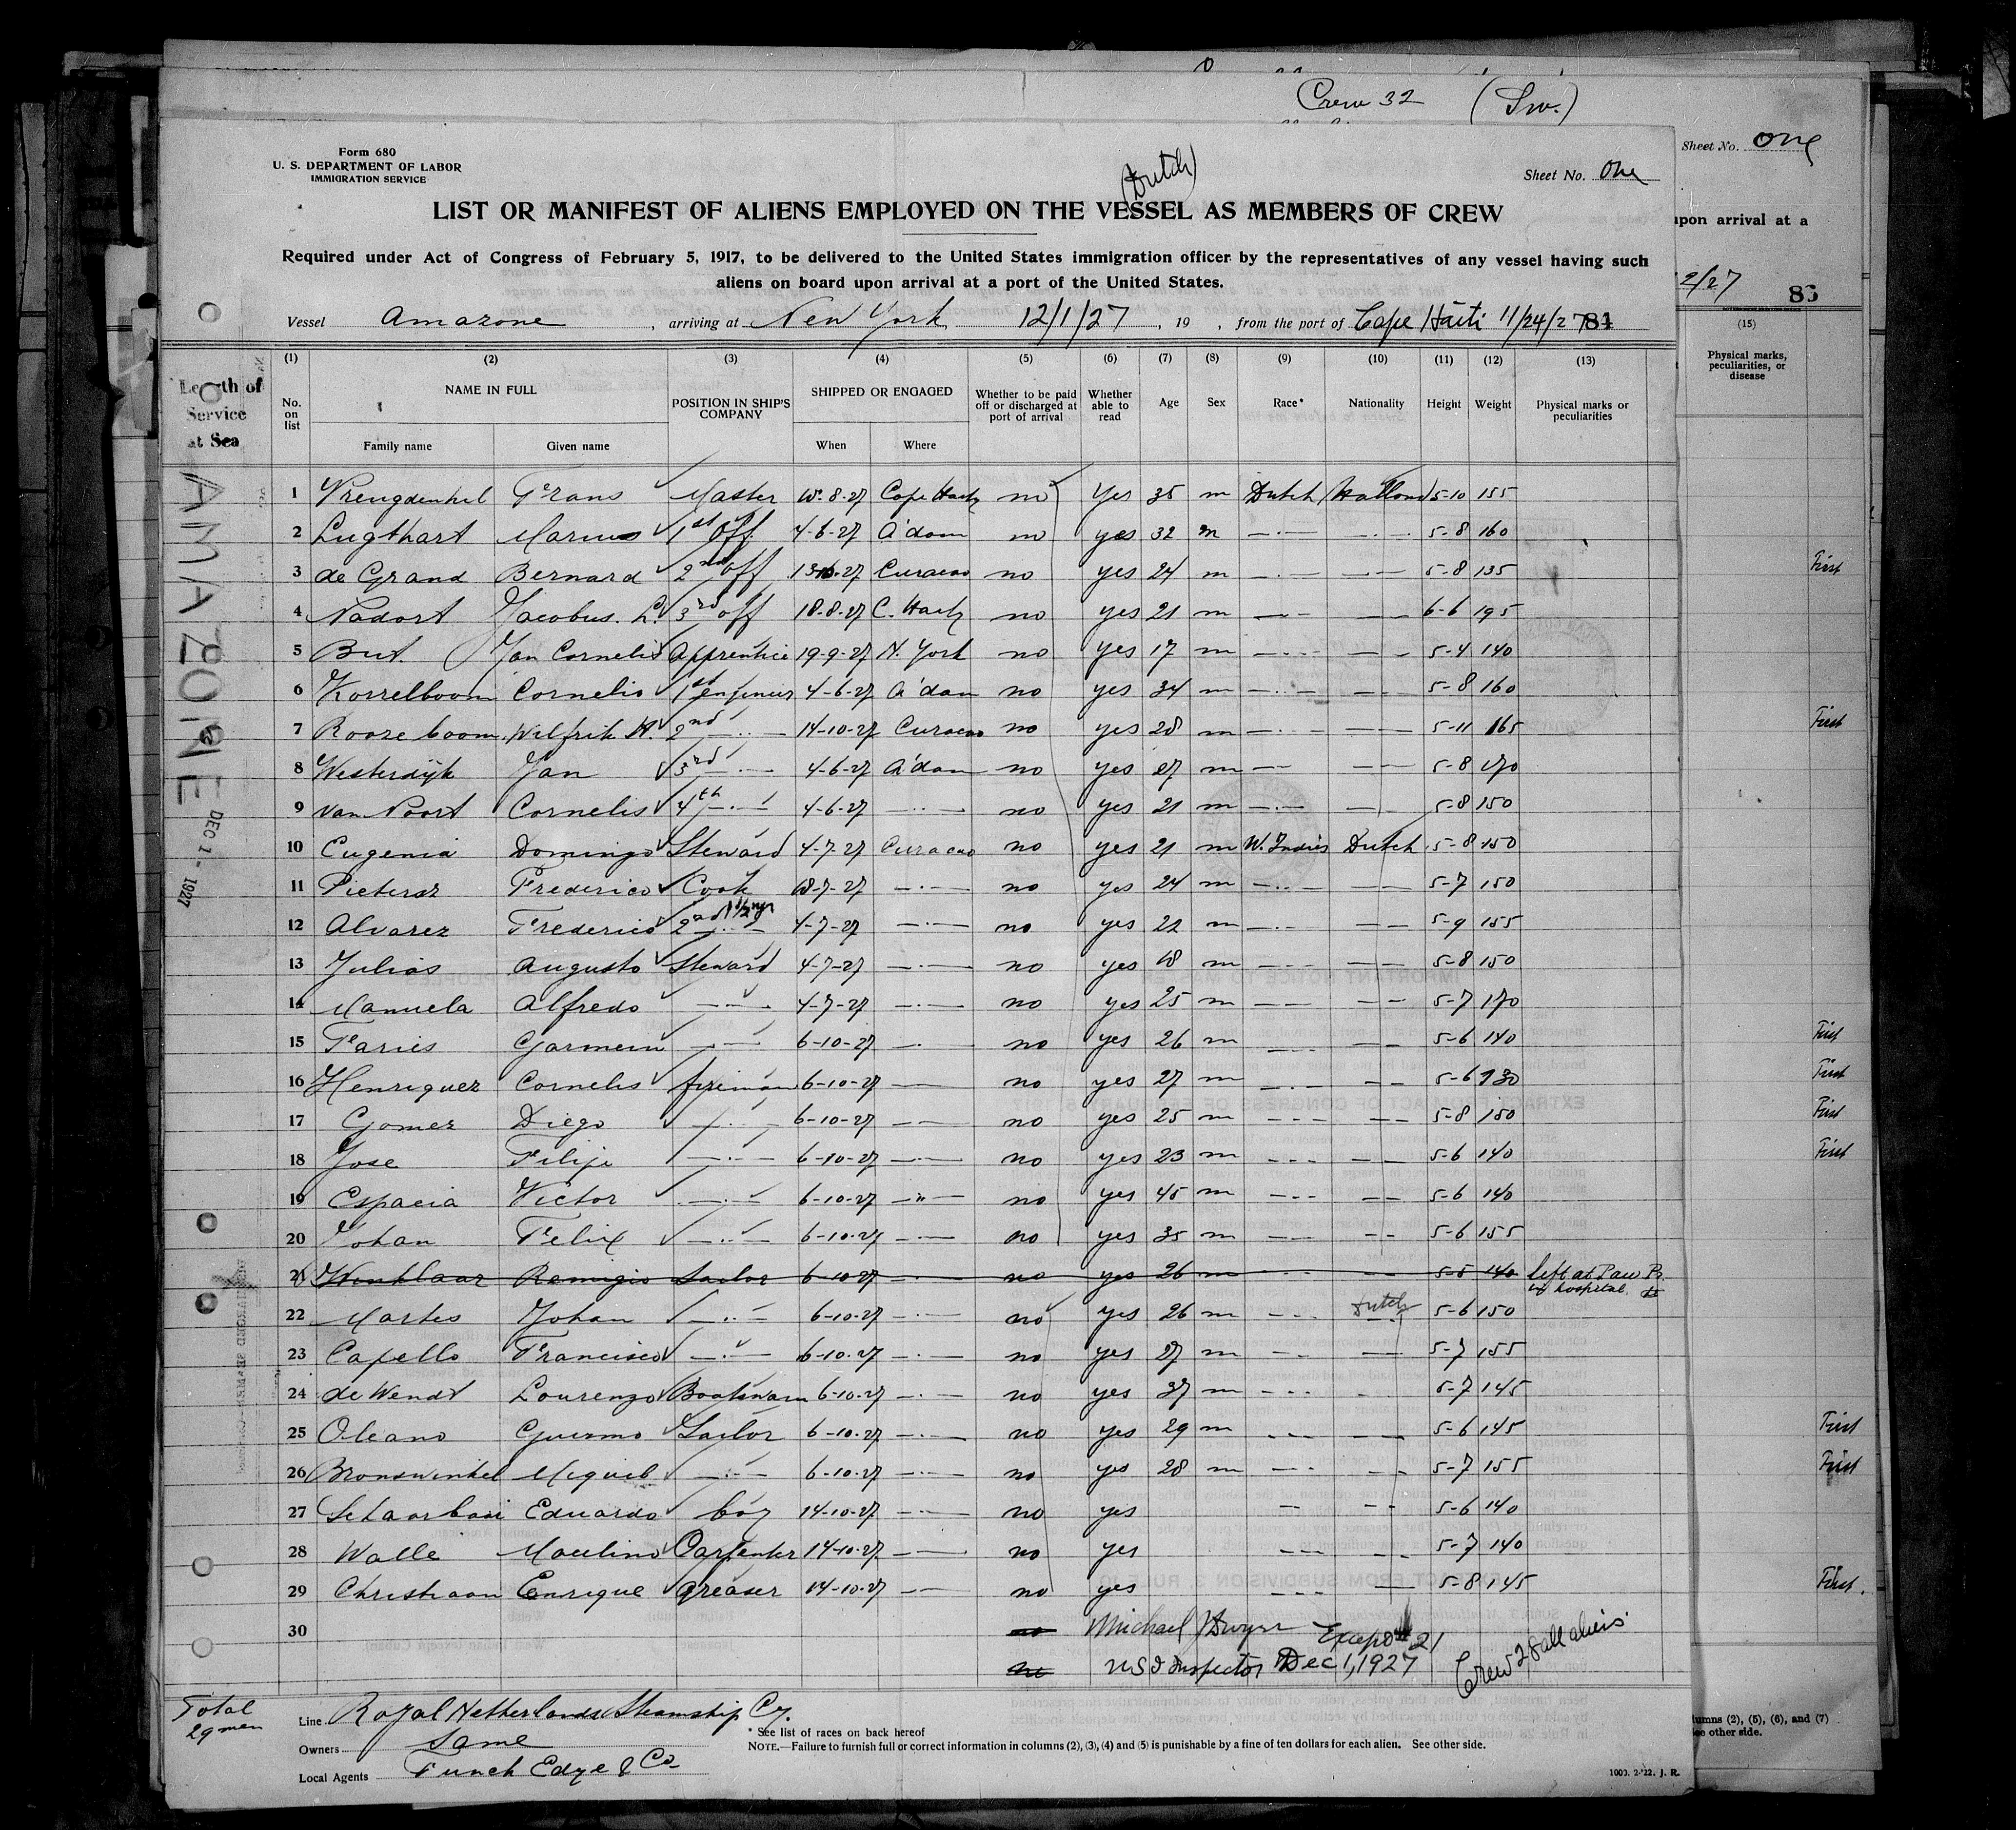 Crew 32 (Sw.)
Sheet No. One
upon arrival at a
2/27 86
(15)
Physical marks, peculiarities, or disease
Form 680
U. S. DEPARTMENT OF LABOR
IMMIGRATION SERVICE
(Dutch)
Sheet No. One
LIST OR MANIFEST OF ALIENS EMPLOYED ON THE VESSEL AS MEMBERS OF CREW
Required under Act of Congress of February 5, 1917, to be delivered to the United States immigration officer by the representatives of any vessel having such
aliens on board upon arrival at a port of the United States.
Vessel Amazone, arriving at New York 12/1/27, 19 , from the port of Cape Haiti 11/24/27 84
(1) (2) (3) (4) (5) (6) (7) (8) (9) (10) (11) (12) (13)
Length of Service at Sea
No. on list NAME IN FULL POSITION IN SHIP'S COMPANY SHIPPED OR ENGAGED Whether to be paid off or discharged at port of arrival Whether able to read Age Sex Race* Nationality Height Weight Physical marks or peculiarities
Family name Given name When Where
AMAZONE DEC 1- 1927
1 Vreugdenhil Frans Master 10-8-27 Cape Haity no Yes 35 m Dutch Holland 5-10 155
2 Lugthart Marius 1st Off. 4-6-27 A'dam no yes 32 m —·— —·— 5-8 160
3 de Grand Bernard 2nd off 27 Curacao no yes 24 m —·— —·— 5-8 135 First
4 Nadort Jacobus. L. 3rd off 18-8-27 C. Haity no yes 21 m —·— —·— 6-6 195
5 But. Jan Cornelis Apprentice 19-9-27 N. York no yes 17 m —·— —·— 5-4 140
6 Korrelboom Cornelis 1st engineer 4-6-27 A'dam no yes 34 m —·— —·— 5-8 160
7 Roozeboom Wilfrik H. 2nd —·— 14-10-27 Curacao no yes 28 m —·— —·— 5-11 165 First
8 Westerdijk Jan 3rd —·— 4-6-27 A'dam no yes 27 m —·— —·— 5-8 170
9 van Noort Cornelis 4th —·— 4-6-27 —·— no yes 21 m —·— —·— 5-8 150
10 Eugenia Domingo Steward 4-7-27 Curacao no yes 21 m W. Indies Dutch 5-8 150
11 Pietersz Frederico Cook 18-7-27 —·— no yes 24 m —·— —·— 5-7 150
12 Alvarez Frederico 2nd —·— 4-7-27 —·— no yes 22 m —·— 5-9 155
13 Julias Augusto Steward 4-7-27 —·— no yes 18 m —·— —·— 5-8 150
14 Manuela Alfredo —·— 4-7-27 —·— no yes 25 m —·— —·— 5-7 170
15 Faries Garmein —·— 6-10-27 —·— no yes 26 m —·— —·— 5-6 140 First
16 Henriquez Cornelis fireman 6-10-27 —·— no yes 27 m —·— —·— 5-6 130 First
17 Gomez Diego —·— 6-10-27 —·— no yes 25 m —·— —·— 5-8 150 First
18 Jose Filipi —·— 6-10-27 —·— no yes 23 m —·— —·— 5-6 140 First
19 Espacia Victor —·— 6-10-27 —"— no yes 45 m —·— —·— 5-6 140
20 Johan Felix —·— 6-10-27 —·— no yes 35 m —·— —·— 5-6 155
21 Winklaar Remigio Sailor 6-10-27 —·— no yes 26 m —·— —·— 5-5 140 left at Pau Pr. hospital.
22 Martes Johan —·— 6-10-27 —·— no yes 26 m —·— Dutch 5-6 150
23 Capello Francisco —·— 6-10-27 —·— no yes 27 m —·— —·— 5-7 155
24 de Wendt Lourenzo Boatswain 6-10-27 —·— no yes 37 m —·— —·— 5-7 145
25 Oleano Guermo Sailor 6-10-27 —·— no yes 29 m —·— —·— 5-6 145 First
26 Bronswinkel Miguil —·— 6-10-27 —·— no yes 28 m —·— —·— 5-7 155 First
27 Schaarbaai Eduardo boy 14-10-27 —·— no yes —·— —·— 5-6 140
28 Walle Maulino Carpenter 14-10-27 —·— no yes —·— —·— 5-7 140
29 Christiaan Enrique greaser 14-10-27 —·— no yes —·— —·— 5-8 145 First.
30 no Michael J Dwyer Except # 21
no US I Inspector Dec 1, 1927 Crew 28 all aliens
Total 29 men
Line Royal Netherlands Steamship Cy.
Owners Same
Local Agents Funch Edye & Co
* See list of races on back hereof
NOTE.—Failure to furnish full or correct information in columns (2), (3), (4) and (5) is punishable by a fine of ten dollars for each alien. See other side.
1000. 2-'22. J. R.
lumns (2), (5), (6), and (7)
ee other side.